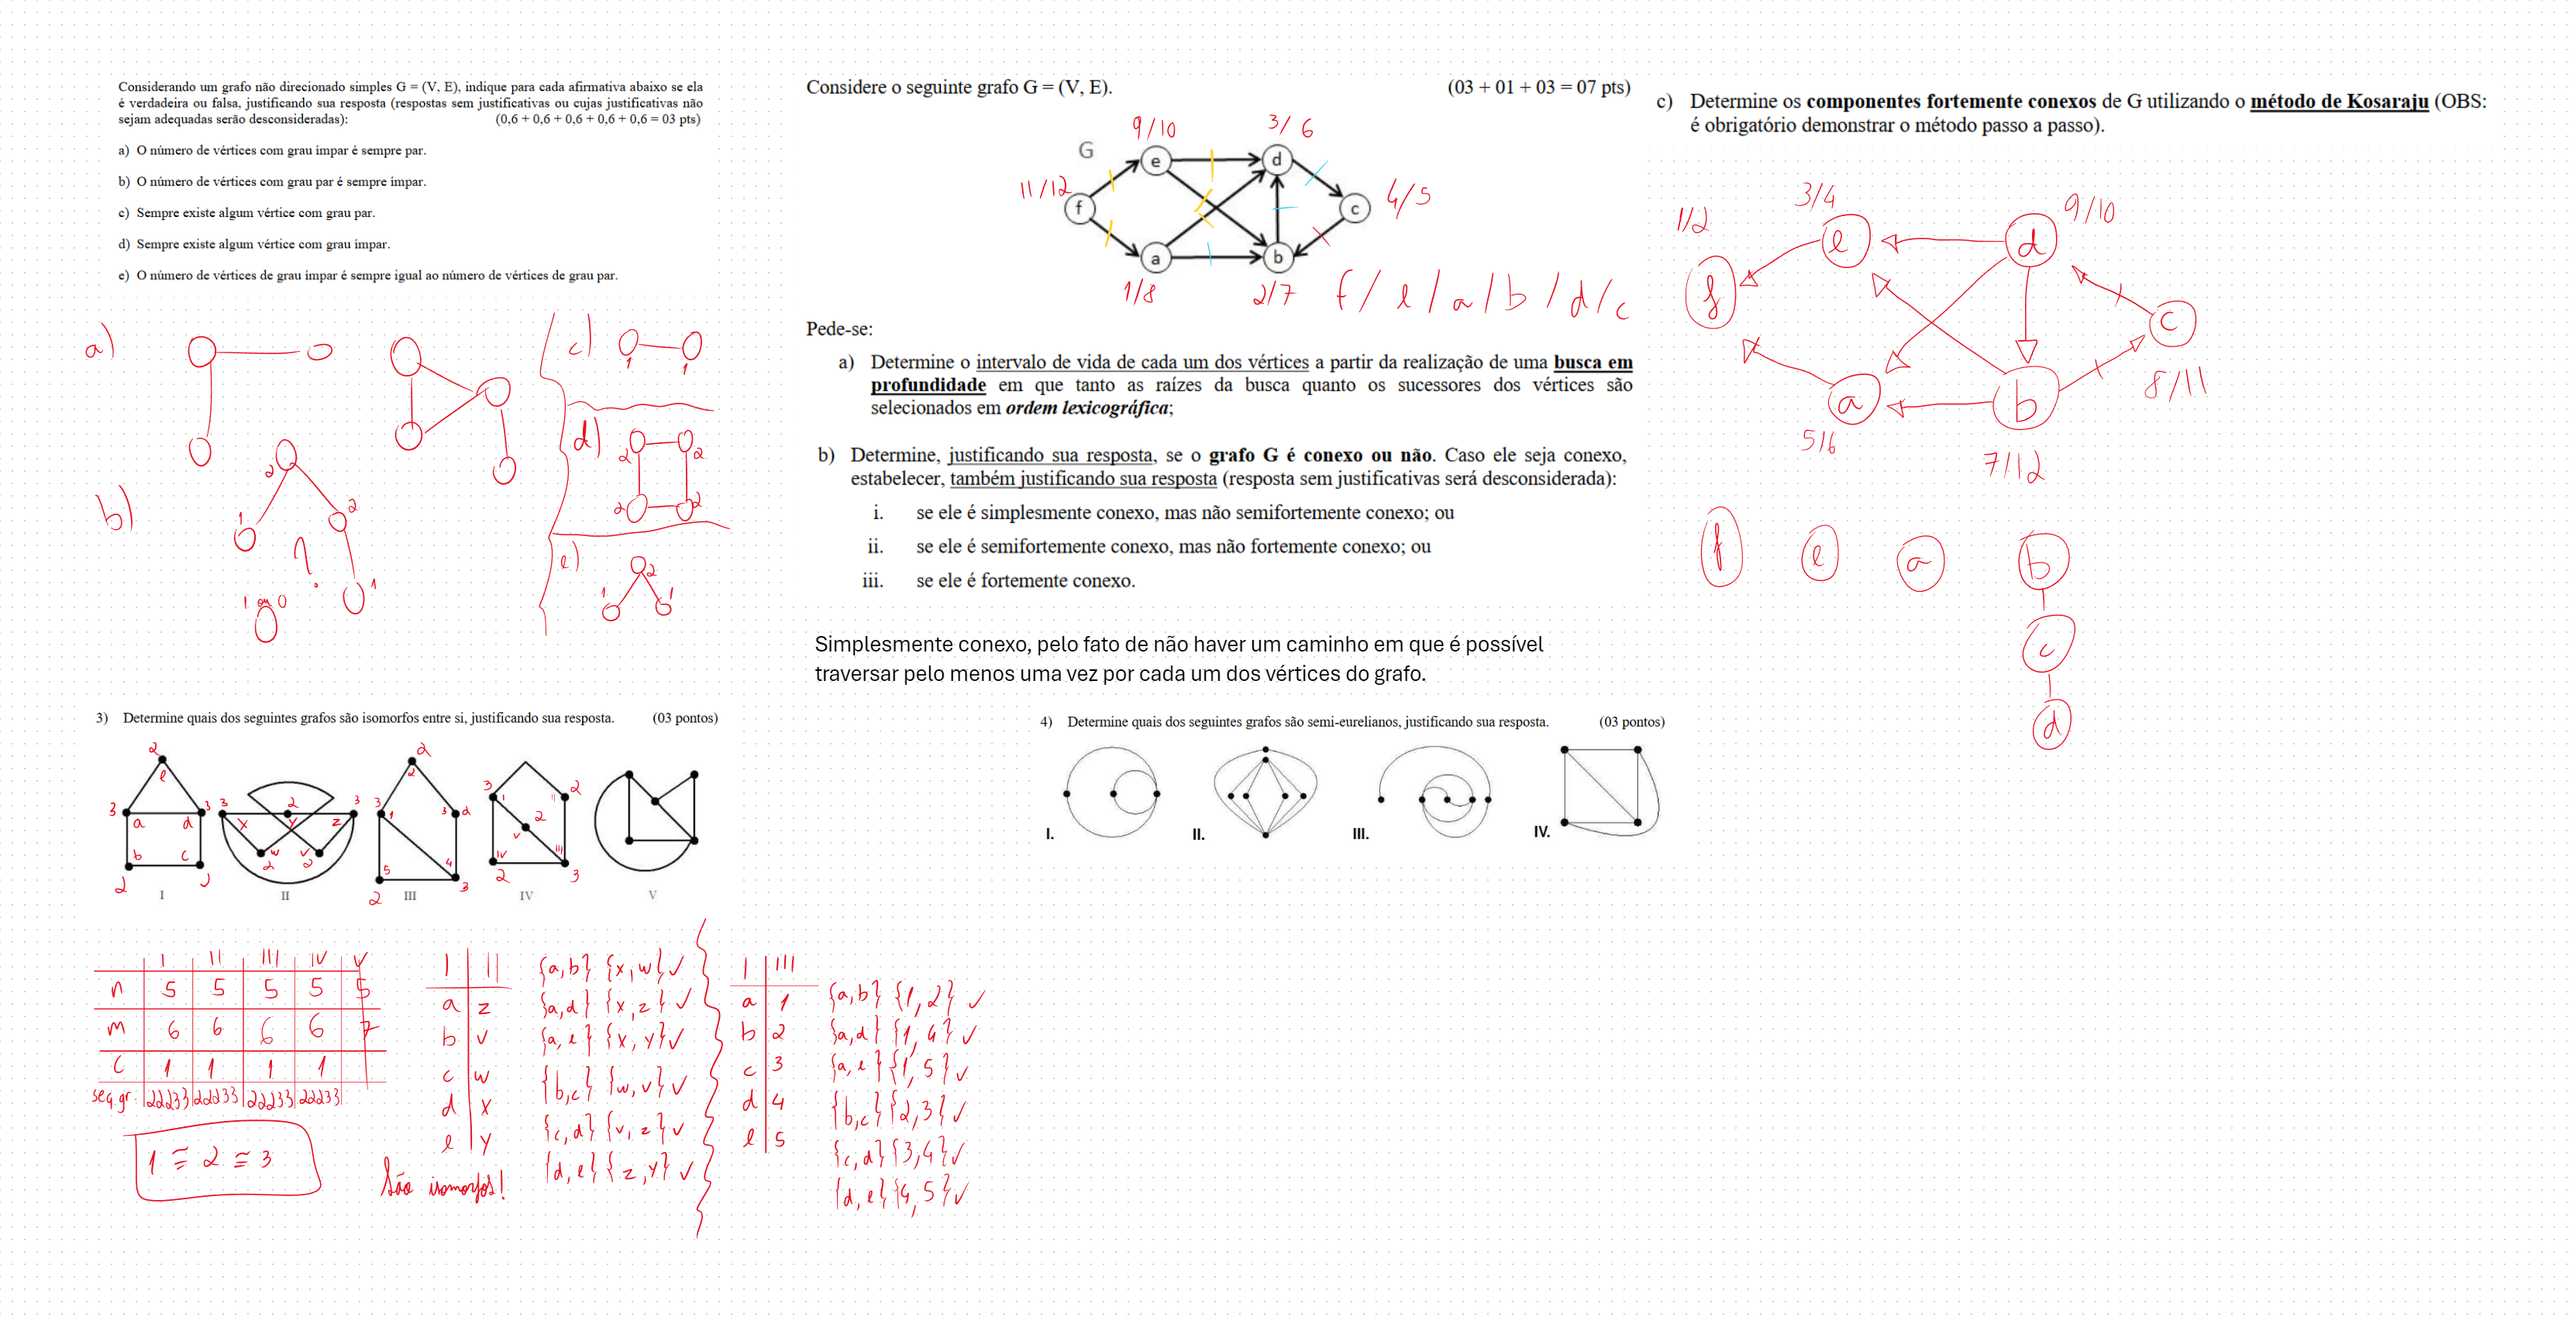 Considerando um grafo não direcionado simples G = (V, E), indique para cada afirmativa abaixo se ela
é verdadeira ou falsa, justificando sua resposta (respostas sem justificativas ou cujas justificativas não
sejam adequadas serão desconsideradas): (0,6 + 0,6 + 0,6 + 0,6 + 0,6 = 03 pts)
a) O número de vértices com grau ímpar é sempre par.
b) O número de vértices com grau par é sempre ímpar.
c) Sempre existe algum vértice com grau par.
d) Sempre existe algum vértice com grau ímpar.
e) O número de vértices de grau ímpar é sempre igual ao número de vértices de grau par.
a)
b)
2
2
1
1
?
1 ou 0
c)
1
1
d)
2
2
2
2
e)
2
1
1
Considere o seguinte grafo G = (V, E). (03 + 01 + 03 = 07 pts)
G
9/10
3/6
11/12
4/5
1/8
2/7
e
d
f
c
a
b
f/e/a/b/d/c
Pede-se:
a) Determine o intervalo de vida de cada um dos vértices a partir da realização de uma busca em
profundidade em que tanto as raízes da busca quanto os sucessores dos vértices são
selecionados em ordem lexicográfica;
b) Determine, justificando sua resposta, se o grafo G é conexo ou não. Caso ele seja conexo,
estabelecer, também justificando sua resposta (resposta sem justificativas será desconsiderada):
i. se ele é simplesmente conexo, mas não semifortemente conexo; ou
ii. se ele é semifortemente conexo, mas não fortemente conexo; ou
iii. se ele é fortemente conexo.
Simplesmente conexo, pelo fato de não haver um caminho em que é possível
traversar pelo menos uma vez por cada um dos vértices do grafo.
c) Determine os componentes fortemente conexos de G utilizando o método de Kosaraju (OBS:
é obrigatório demonstrar o método passo a passo).
1/2
3/4
9/10
8/11
5/6
7/12
f
e
d
c
a
b
f
e
a
b
c
d
3) Determine quais dos seguintes grafos são isomorfos entre si, justificando sua resposta. (03 pontos)
2
e
3
3
a
d
b
c
2
I
3
2
3
x
y
z
w
v
2
2
II
2
2
3
1
3
d
5
4
2
3
III
3
2
I
II
2
V
IV
III
2
3
IV
V
I II III IV V
n 5 5 5 5 5
m 6 6 6 6 7
C 1 1 1 1
seq.gr. 22233 22233 22233 22233
1 ≅ 2 ≅ 3
São isomorfos!
I II
a z
b v
c w
d x
e y
{a,b} {x,w} ✓
{a,d} {x,z} ✓
{a,e} {x,y} ✓
{b,c} {w,v} ✓
{c,d} {v,z} ✓
{d,e} {z,y} ✓
I III
a 1
b 2
c 3
d 4
e 5
{a,b} {1,2} ✓
{a,d} {1,4} ✓
{a,e} {1,5} ✓
{b,c} {2,3} ✓
{c,d} {3,4} ✓
{d,e} {4,5} ✓
4) Determine quais dos seguintes grafos são semi-eurelianos, justificando sua resposta. (03 pontos)
I.
II.
III.
IV.